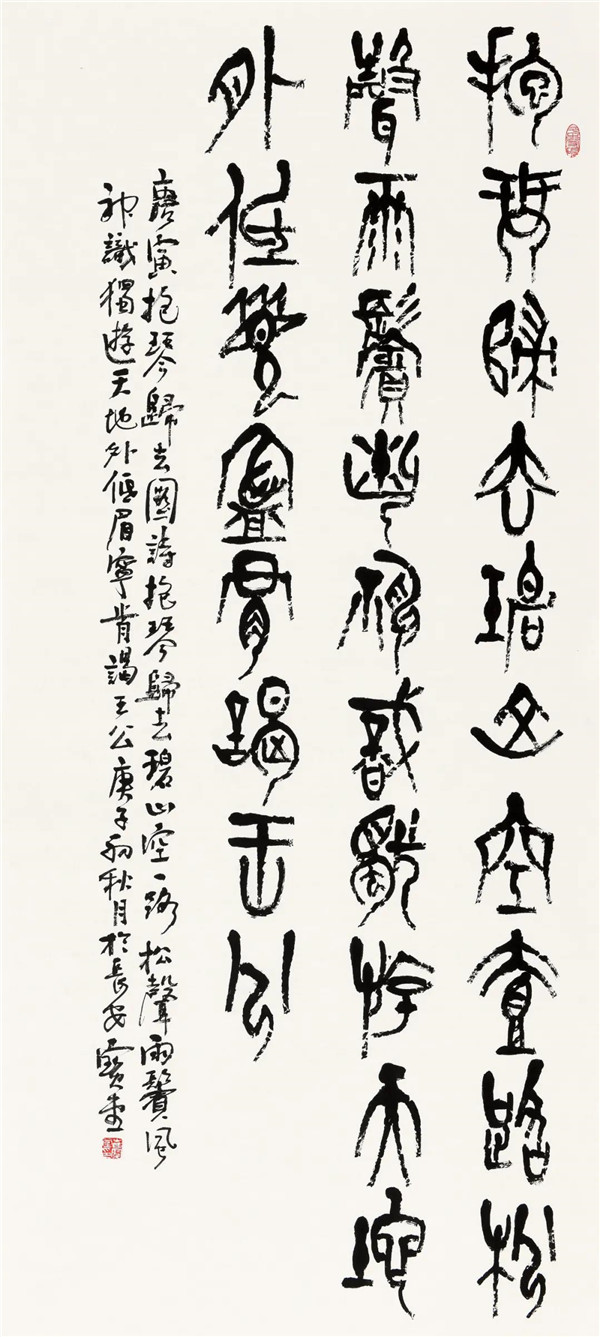 抱琴歸去碧山空壹路松
聲雨鬢風神識獨游天地
外低眉寧肯謁王公
唐寅抱琴歸去圖詩抱琴歸去碧山空一路松聲雨鬢風
神識獨遊天地外低眉寧肯謁王公庚子初秋月於長安寶